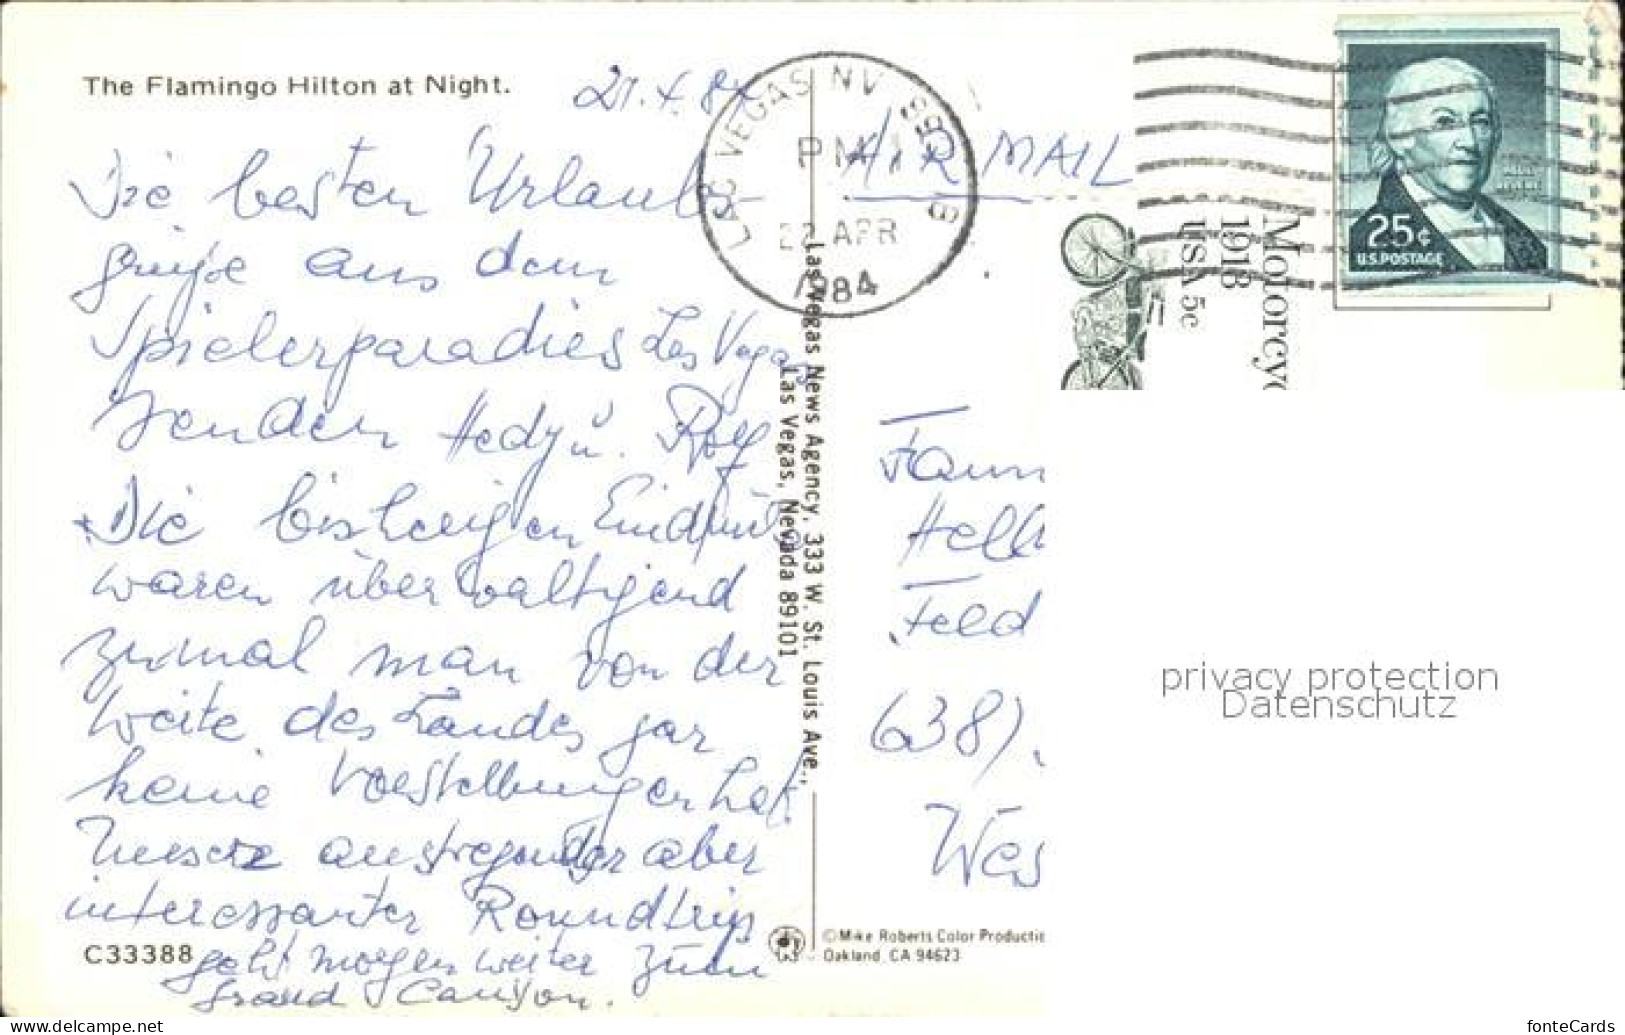 The Flamingo Hilton at Night.
21.4.84
Die besten Urlaubs-
grüße aus dem
Spielerparadies Las Vegas
senden Hedy u. Rolf
Die bisherigen Eindrücke
waren überwältigend
zumal man von der
Weite des Landes gar
keine Vorstellungen hat.
Unser anstrengender aber
interessanter Roundtrip
geht morgen weiter zum
Grand Canyon.
C33388
Las Vegas News Agency, 333 W. St. Louis Ave.,
Las Vegas, Nevada 89101
LAS VEGAS NV
PM
APR
1984
AIR MAIL
Motorcyc
1913
USA 5c
25¢
U.S. POSTAGE
Fam
Hell
Feld
638
Wes
©Mike Roberts Color Productio
Oakland, CA 94623
privacy protection
Datenschutz
www.delcampe.net
fonteCards